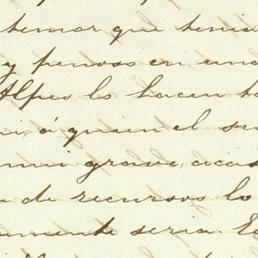 temor que tenia
y penoso en una
Alpes lo hacen to
á quien el su
grave, acas
de recursos lo
mente seria. E